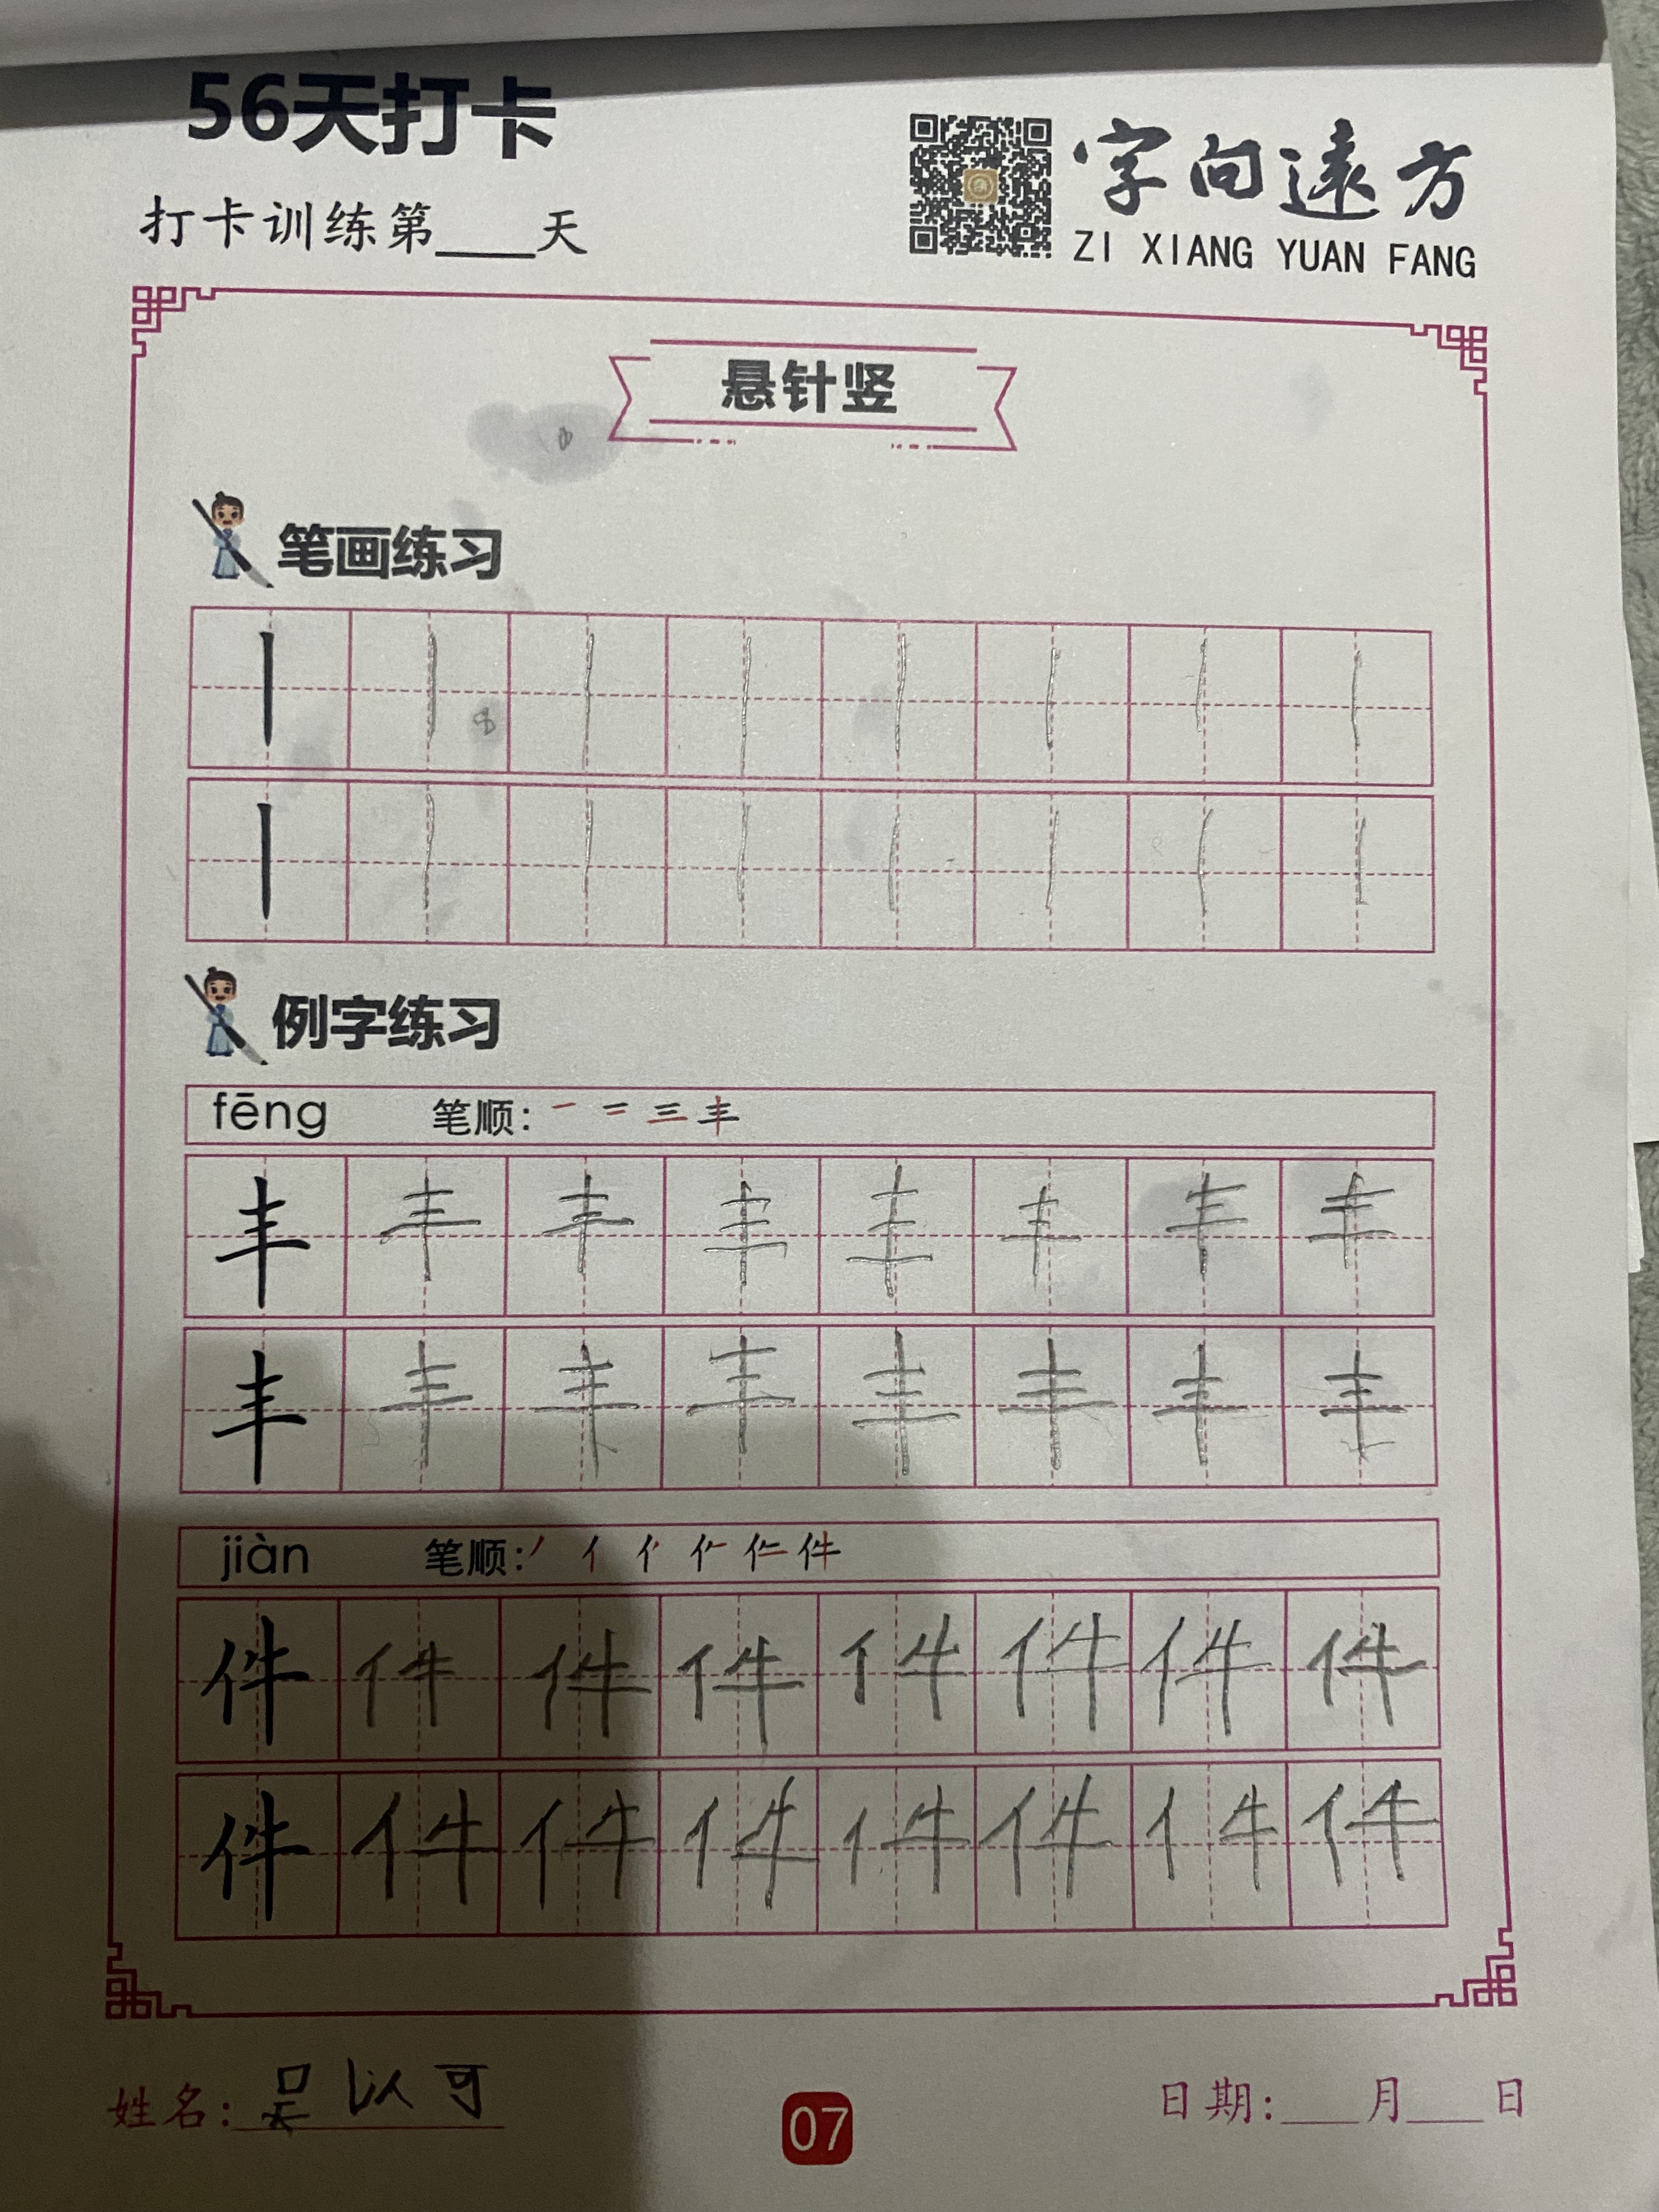 56天打卡
打卡训练第____天
字向遠方
ZI XIANG YUAN FANG
悬针竖
笔画练习
丨 丨 丨 丨 丨 丨 丨 丨
丨 丨 丨 丨 丨 丨 丨 丨
例字练习
fēng 笔顺: 一 二 三 丰
丰 丰 丰 丰 丰 丰 丰 丰
丰 丰 丰 丰 丰 丰 丰 丰
jiàn 笔顺: 件
件 件 件 件 件 件 件 件
件 件 件 件 件 件 件 件
姓名: 吴以可
07
日期:___月___日